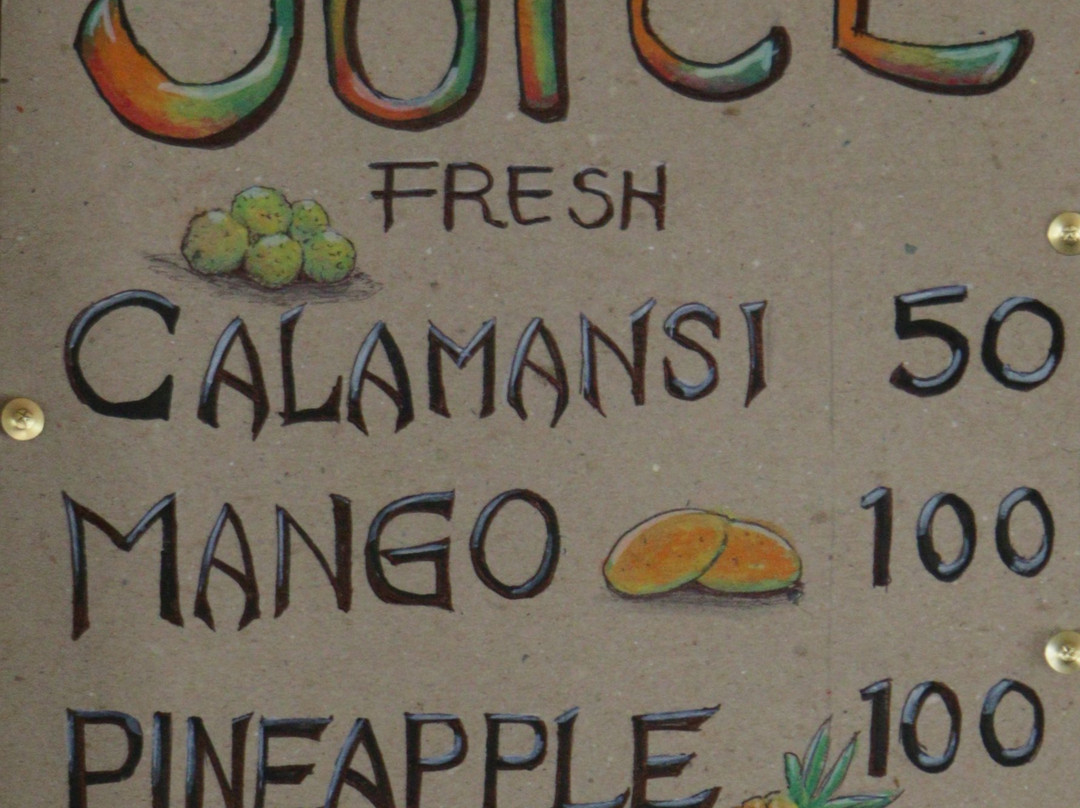 JUICE
FRESH
CALAMANSI 50
MANGO 100
PINEAPPLE 100